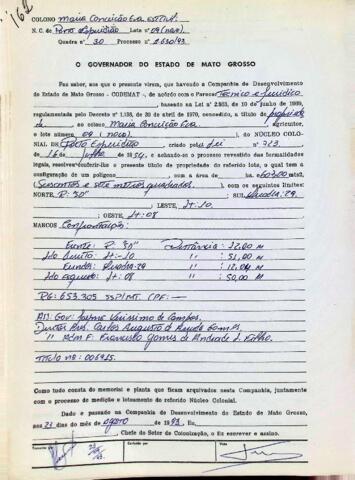 162
COLONO Maria Conceição Eva
N. C. de Porto Esperidião Lote 09 (nove)
Quadra nº 30 Processo nº 2.630/93
O GOVERNADOR DO ESTADO DE MATO GROSSO
Faz saber, aos que o presente virem, que havendo a Companhia de Desenvolvimento
do Estado de Mato Grosso - CODEMAT -, de acôrdo com o Parecer Técnico e Jurídico
baseado na Lei nº 2.803, de 10 de junho de 1969,
regulamentada pelo Decreto nº 1.138, de 20 de abril de 1970, concedido, a título de
ao colono Maria Conceição Eva agricultor,
o lote número 09 (nove) do NÚCLEO COLO-
NIAL DE Porto Esperidião criado pela Lei nº 723
de 16 de Julho de 1954, e achando-se o processo revestido das formalidades
legais, resolve conferir-lhe o presente título de propriedade do referido lote, o qual tem a
configuração de um polígono com a área de
(Seiscentos e sete metros quadrados), com os seguintes limites:
NORTE, R. "30" SUL Quadra-29
LESTE, Lt-10
OESTE, Lt-08
MARCOS Confrontações:
Frente: R. 30" Distância: 12,00 M
Ldo Direito: Lt-10 " : 51,00 M
Fundos: Quadra-29 " : 12,04 M
Ldo Esquerdo: Lt-08 " : 50,00 M
RG: 653.305 SSP/MT. CPF:
Ass: Gov: Jayme Veríssimo de Campos.
Diretor Pres. Carlos Augusto de
" Adm F. Francisco Gomes de Andrade L. Filho.
TITULO Nº: 006915.
Como tudo consta do memorial e planta que ficam arquivados nesta Companhia, juntamente
com o processo de medição e loteamento do referido Núcleo Colonial.
Dado e passado na Companhia de Desenvolvimento do Estado de Mato Grosso,
aos 23 dias do mês de Agosto de 1993, Eu,
Chefe do Setor de Colonização, o fiz escrever e assino.
Transcrito por
Conferido por
Visto